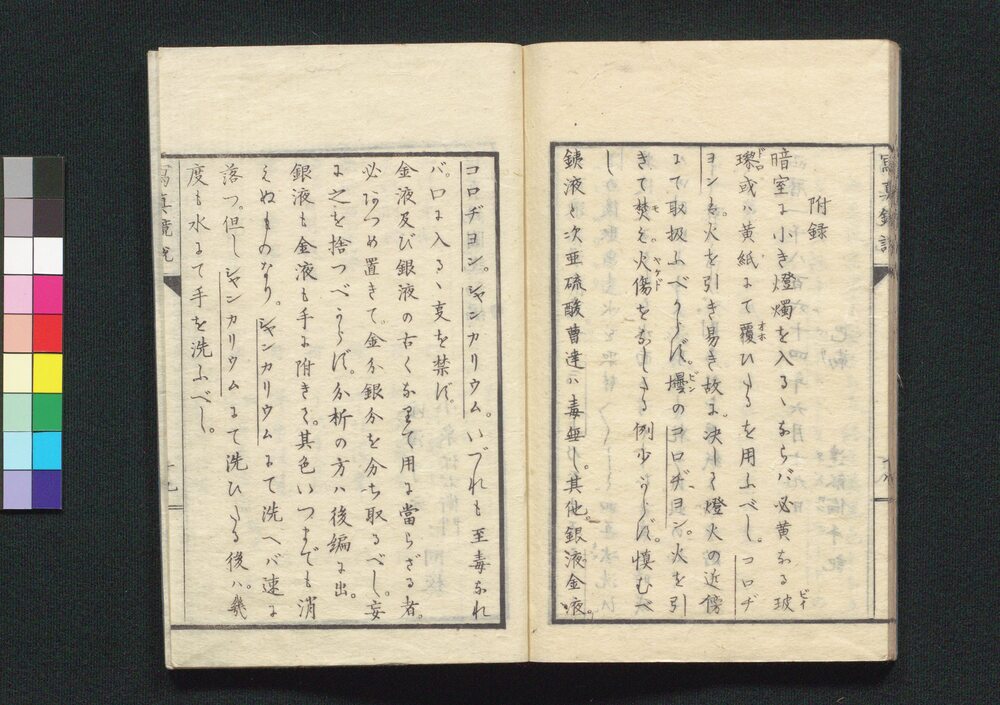 附録
暗室に小き燈燭を入るゝならバ必黄なる玻
瓈或ハ黄紙にて覆ひたるを用ふべし。コロヂ
ヨンは火を引き易き故に決して燈火の近傍
にて取扱ふべからず。壜のコロヂヨン。火を引
きて焚え火傷をなしたる例少からず。慎むべ
し
銕液と次亜硫酸曹達ハ毒無し。其他。銀液金液。
コロヂヨン。シヤンカリウム。いづれも至毒なれ
バ。口に入るゝ支を禁ず。
金液及び銀液の古くなりて用に當らざる者。
必あつめ置きて。金分銀分を分ち取るべし。妄
に之を捨つべからず。分析の方ハ後編に出。
銀液も金液も手に附きて。其色いつまでも消
えぬものなり。シヤンカリウムにて洗へバ速に
落つ。但しシヤンカリウムにて洗ひたる後ハ。幾
度も水にて手を洗ふべし。
寫真鏡説
十九